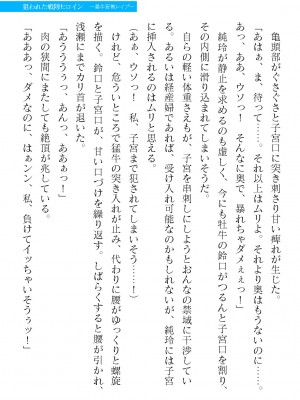 狙われた戦隊ヒロイン
亀頭部がぐさぐさと子宮口に突き刺さり甘い痺れが生じた。
「あはぁ、ま、待って……。それ以上はムリよ。それより奥はもうないのに……。
あっ、ああ、ウソっ！　そんなに奥で、暴れちゃダメぇぇっ！」
純玲が静止を求めるのも虚しく、今にも牡牛の鈴口がつるんと子宮口を割り、
その内側に滑り込んでしまいそうだ。
自らの軽い体重さえもが、子宮を串刺しにしようとおんなの禁域に干渉してい
る。あるいは経産婦であれば、受け入れ可能なのかもしれないが、純玲には子宮
に挿入されるのはムリと思える。
(あぁ、ウソっ！　私、子宮まで犯されてしまいそう……！)
けれど、危ういところで猛牛の突き入れが止み、代わりに腰がゆっくりと螺旋
を描く。鈴口と子宮口が、甘い口づけを繰り返す。しばらくすると腰が引かれ、
浅瀬にまでカリ首が退いた。
「あうううぅっ、あんっ、ああぁっ！」
肉の狭間にまたしても絶頂が兆している。
「あああっダメなのに、はぁンン、私、負けてイッちゃいそうぅッ！」